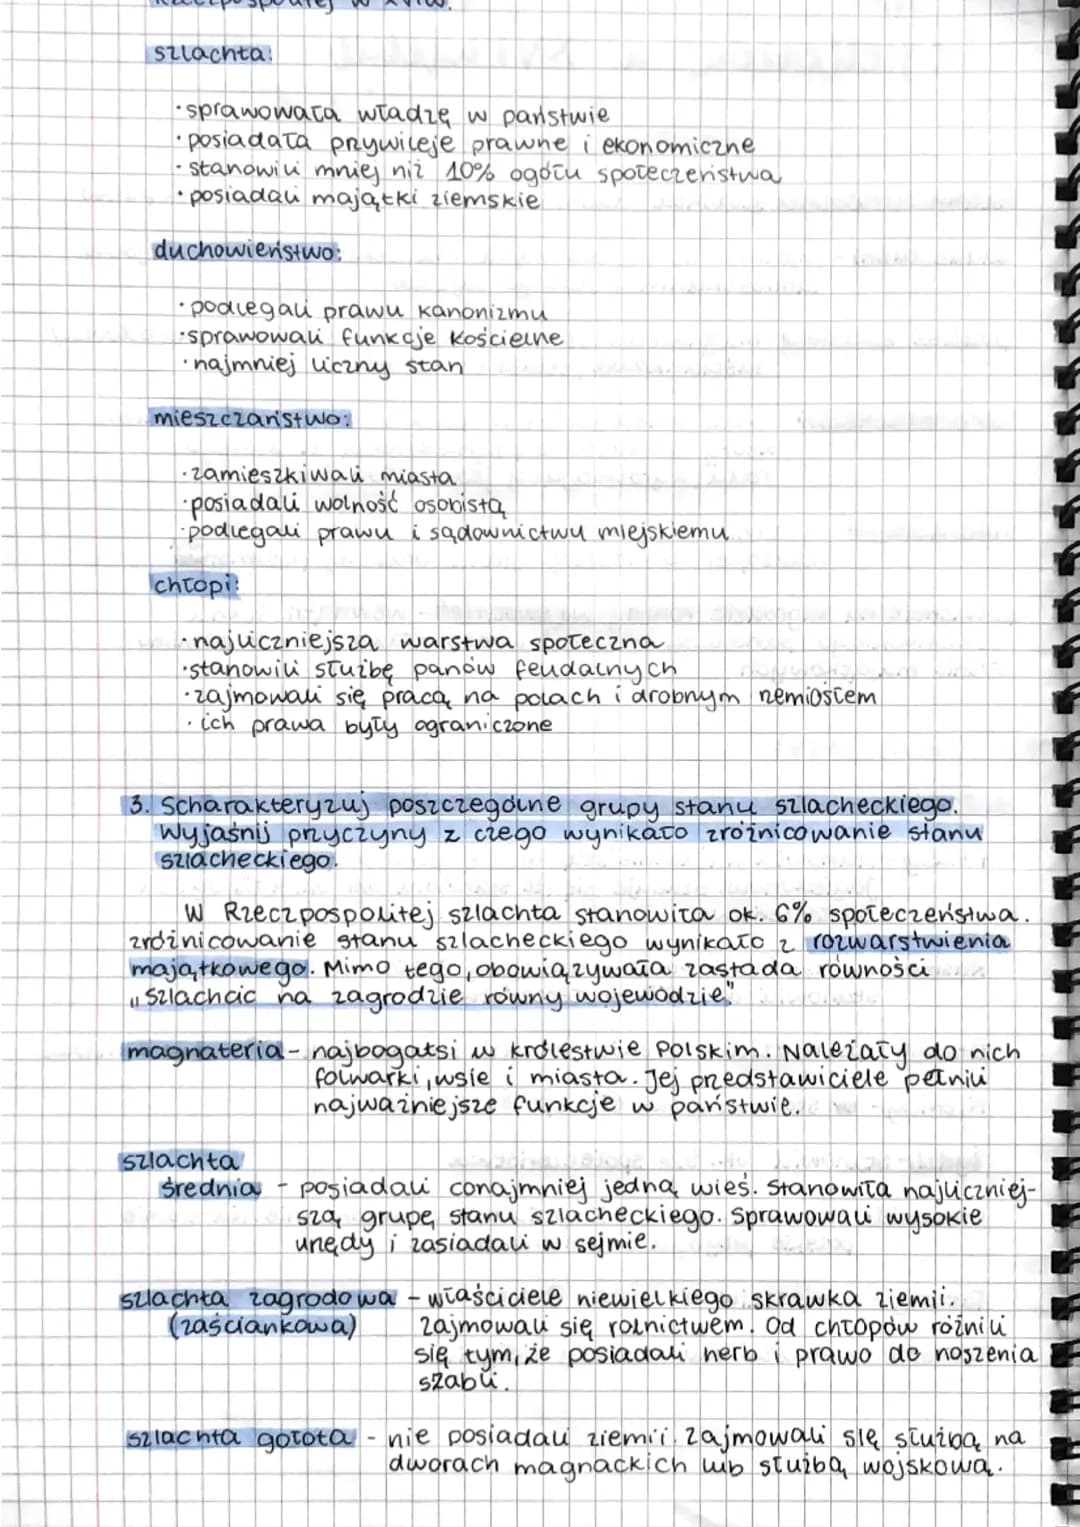 Rzeczpospolitej w XVIw.
szlachta:
· sprawowała władzę w państwie
· posiadała przywileje prawne i ekonomiczne
· stanowili mniej niż 10% ogółu społeczeństwa
· posiadali majątki ziemskie
duchowieństwo:
· podlegali prawu kanonizmu
· sprawowali funkcje kościelne
· najmniej liczny stan
mieszczaństwo:
· zamieszkiwali miasta
· posiadali wolność osobistą
· podlegali prawu i sądownictwu miejskiemu
chłopi:
· najliczniejsza warstwa społeczna
· stanowili służbę panów feudalnych
· zajmowali się pracą na polach i drobnym rzemiosłem
· ich prawa były ograniczone
3. Scharakteryzuj poszczególne grupy stanu szlacheckiego.
Wyjaśnij przyczyny z czego wynikało zróżnicowanie stanu
szlacheckiego.
W Rzeczpospolitej szlachta stanowiła ok. 6% społeczeństwa.
zróżnicowanie stanu szlacheckiego wynikało z rozwarstwienia
majątkowego. Mimo tego, obowiązywała zasłada równości
„szlachcic na zagrodzie równy wojewodzie"
magnateria - najbogatsi w królestwie Polskim. Należały do nich
folwarki, wsie i miasta. Jej przedstawiciele pełnili
najważniejsze funkcje w państwie.
szlachta
średnia - posiadali conajmniej jedną wieś. Stanowiła najliczniej-
szą grupę stanu szlacheckiego. Sprawowali wysokie
urzędy i zasiadali w sejmie.
szlachta zagrodowa - właściciele niewielkiego skrawka ziemii.
(zaściankowa) zajmowali się rolnictwem. Od chłopów różnili
się tym, że posiadali herb i prawo do noszenia
szabli.
szlachta gołota - nie posiadali ziemii. zajmowali się służbą na
dworach magnackich lub służbą wojskową.